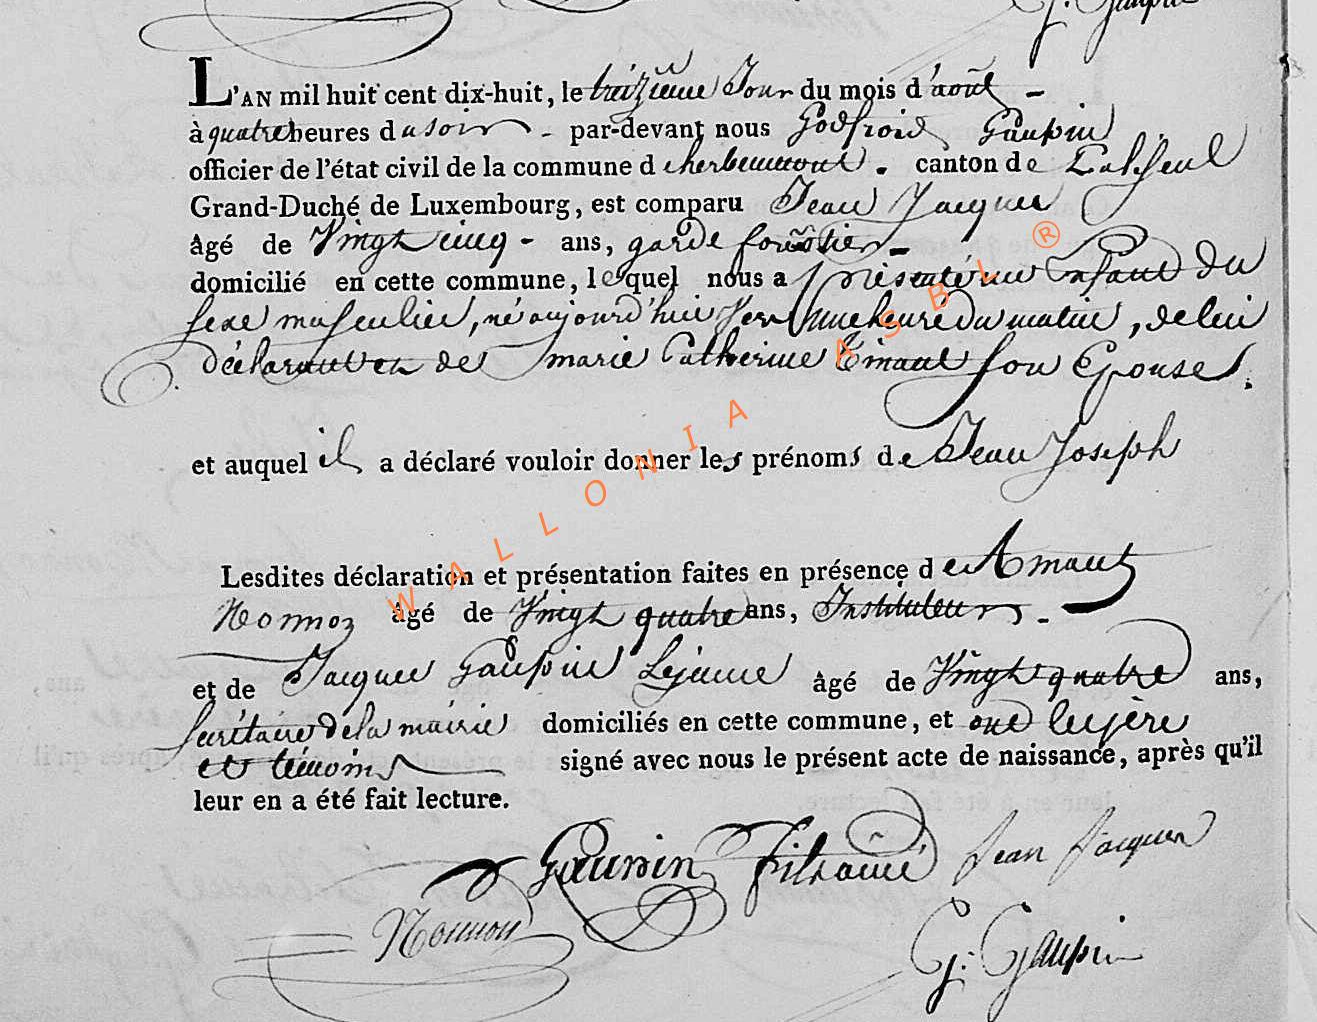 G. Gaupin
L'AN mil huit cent dix-huit, le treizieme Jour du mois d'août
à quatre heures du soir - par-devant nous Godfroid Gaupin
officier de l'état civil de la commune d'herbeumont. canton de Paliseul
Grand-Duché de Luxembourg, est comparu Jean Jacques
âgé de Vingt cinq - ans, garde forestier -
domicilié en cette commune, lequel nous a présenté un Enfant du
sexe masculin, né aujourd'hui vers une heure du matin, de lui
déclarant et de marie Catherine son Epouse.
et auquel il a déclaré vouloir donner les prénoms de Jean Joseph
Lesdites déclaration et présentation faites en présence de Amant
Nonnon âgé de Vingt quatre ans, Instituteur -
et de Jacques Gaupin Lejeune âgé de Vingt quatre ans,
secrétaire de la mairie domiciliés en cette commune, et ont le père
et témoins signé avec nous le présent acte de naissance, après qu'il
leur en a été fait lecture.
Gaupin fils ainé Jean Jacques
Nonnon
G. Gaupin
WALLONIA ASBL ®